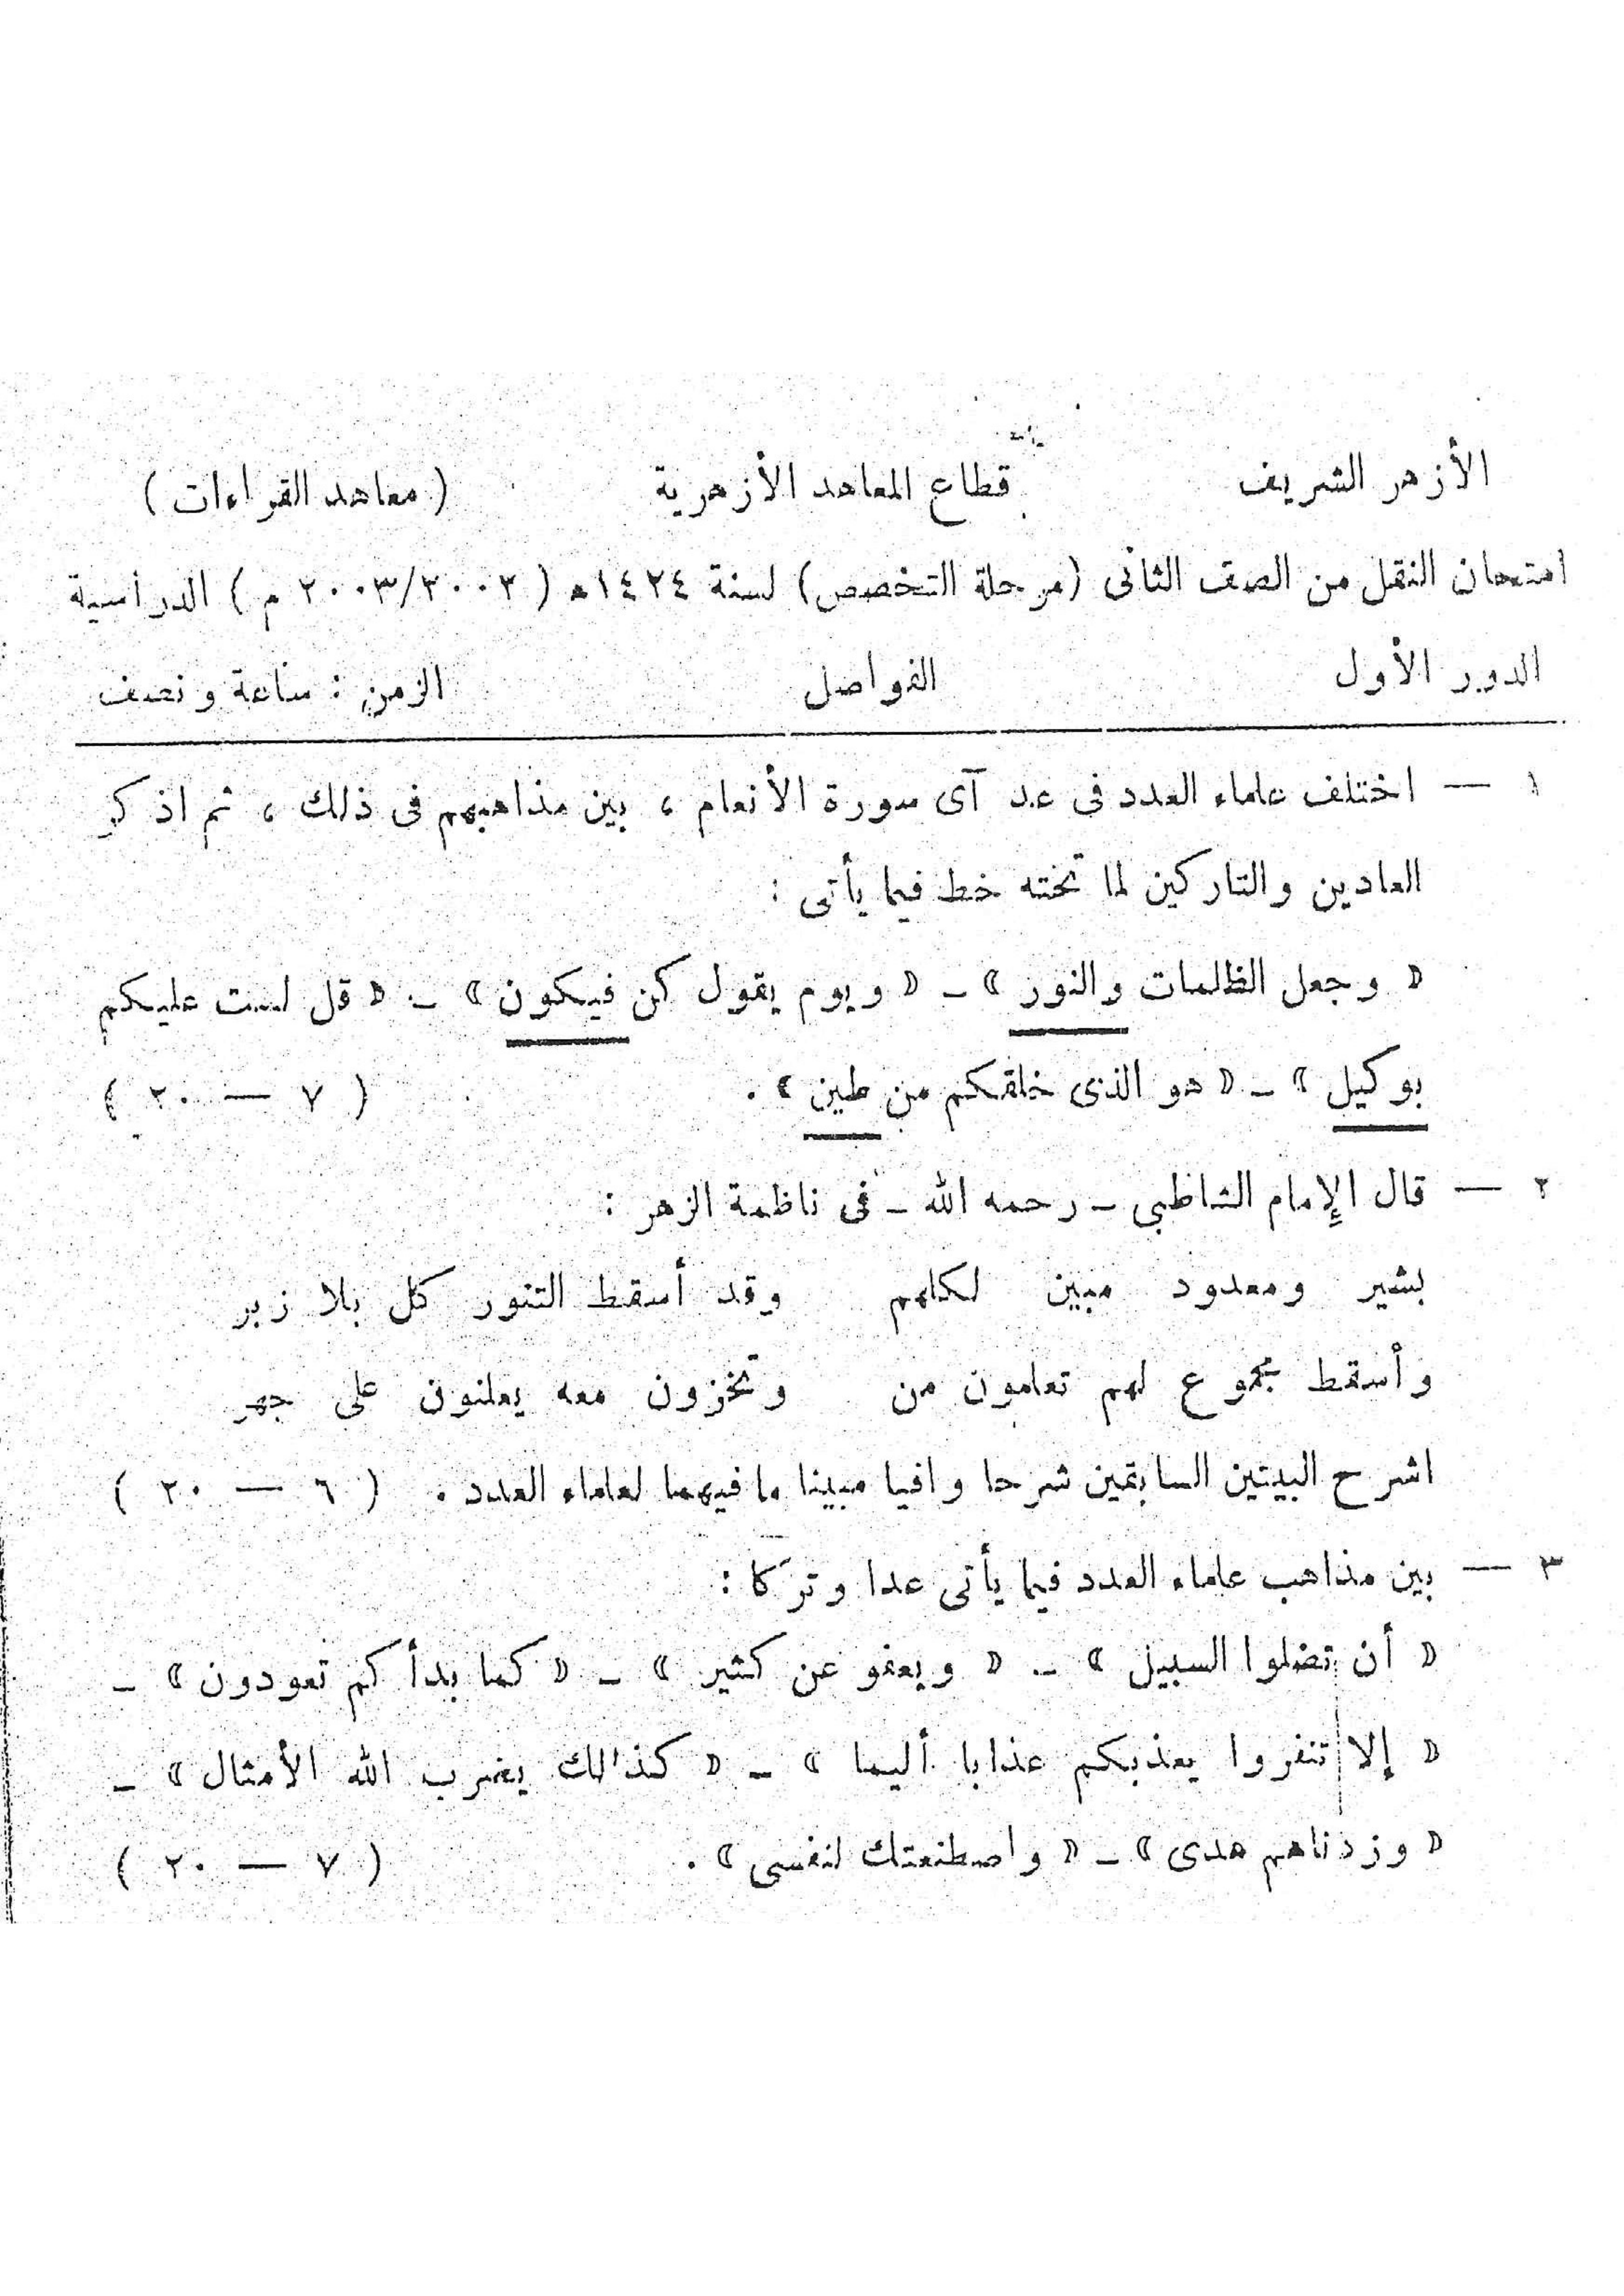 الأزهر الشريف قطاع المعاهد الأزهرية ( معاهد القراءات )
امتحان النقل من الصف الثانى (مرحلة التخصص) لسنة ١٤٢٤ه ( ٢٠٠٣/٢٠٠٢ م ) الدراسية
الدور الأول الفواصل الزمن : ساعة ونصف
١ — اختلف علماء العدد فى عد آى سورة الأنعام ، بين مذاهبهم فى ذلك ، ثم اذكر
العادين والتاركين لما تحته خط فيما يأتى :
« وجعل الظلمات والنور » ـ « ويوم يقول كن فيكون » ـ « قل لست عليكم
بوكيل » ـ « هو الذى خلقكم من طين » . ( ٧ — ٢٠ )
٢ — قال الإمام الشاطبى ـ رحمه الله ـ فى ناظمة الزهر :
بشير ومعدود مبين لكلهم وقد أسقط التنور كل بلا زبر
وأسقط مجموع لهم تعلمون من وتخزون معه يعلنون على جهر
اشرح البيتين السابقين شرحا وافيا مبينا ما فيهما لعلماء العدد . ( ٦ — ٢٠ )
٣ — بين مذاهب علماء العدد فيما يأتى عدا وتركا :
« أن تضلوا السبيل » ـ « ويعفو عن كثير » ـ « كما بدأكم تعودون » ـ
« إلا تنفروا يعذبكم عذابا أليما » ـ « كذلك يضرب الله الأمثال » ـ
« وزدناهم هدى » ـ « واصطنعتك لنفسى » . ( ٧ — ٢٠ )